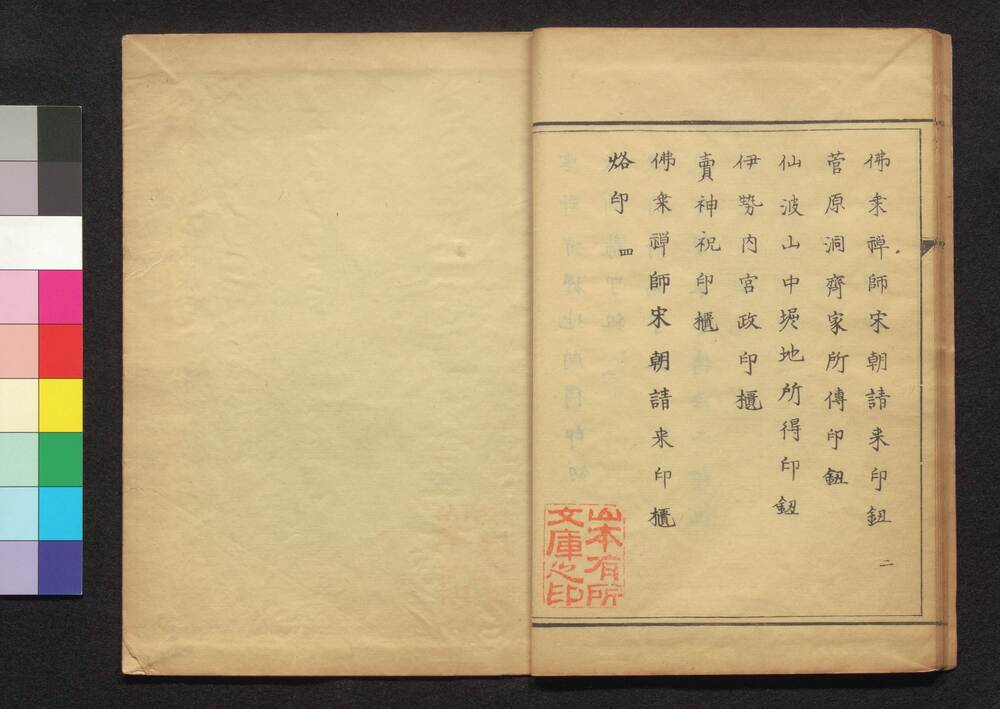 佛乗禅師宋朝請来印鈕 二
菅原洞齊家所傳印鈕
仙波山中掘地所得印鈕
伊勢内宮政印櫃
賣神祝印櫃
佛乗禅師宋朝請来印櫃
烙印 四
山本有所
文庫之印